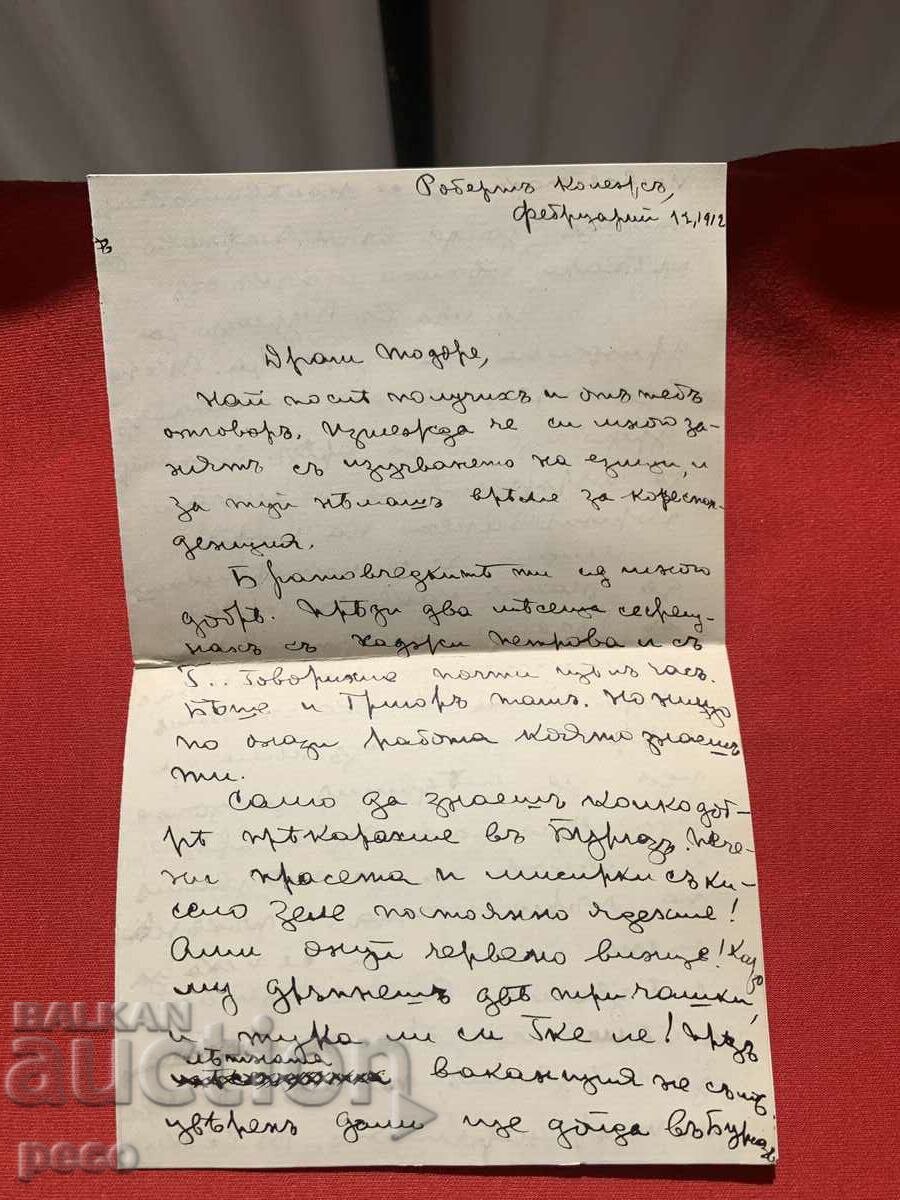 Робертъ Колежъ,
Февруарий 12, 1912
Драги Тодоре,
Най послѣ получихъ и отъ тебъ
отговоръ. Изглежда че си много за-
нятъ съ изучването на езици, и
за туй нѣмашъ врѣме за кореспон-
денция.
Братовчедкитѣ ти сѫ много
добрѣ. Прѣди два мѣсеца се срещ-
нахъ съ Хаджи Петрова и съ
Б.. Говорихме почти цѣлъ часъ.
Бѣше и Григоръ тамъ. Но нищо
по онази работа която знаешъ
ти.
Само да знаешъ колко доб-
рѣ прѣкарахме въ Бургазъ. Пече-
ни прасета и мисирки съ ки-
село зеле постоянно ядехме!
Ами онуй червено винце! Като
му дръпнешъ двѣ три чашки,
и тука ли си бе не! Прѣзъ
лѣтната
ваканция не съмъ
увѣренъ дали ще дойда въ Бургазъ
BALKAN
auction
peco